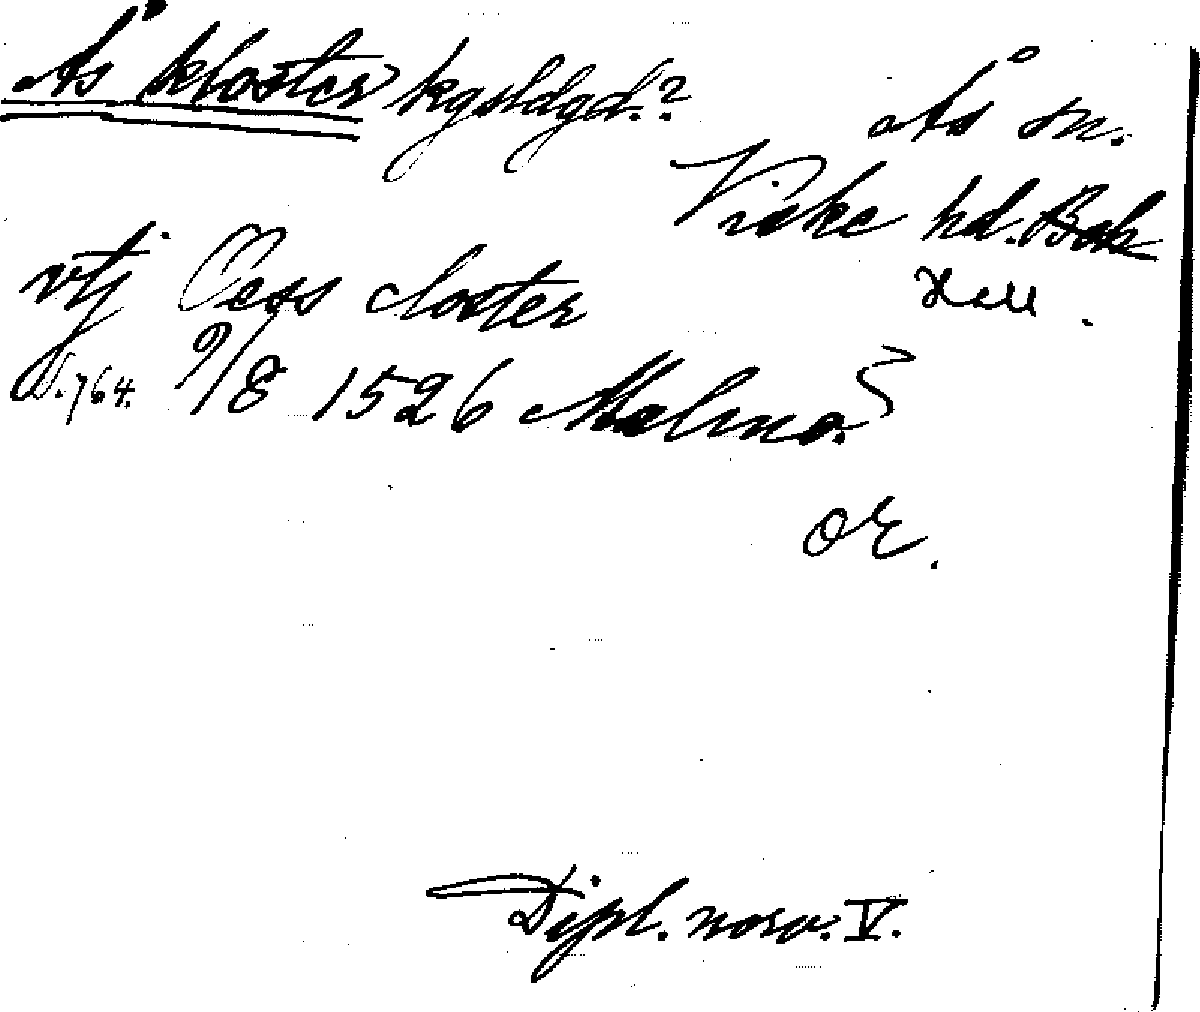 Ås kloster kgsldgd.?
Ås sn.
Viske hd. Boh
Hall.
vtj Oess closter
S. 764. 9/8 1526 Malmø.
or.
Dipl. norv. V.